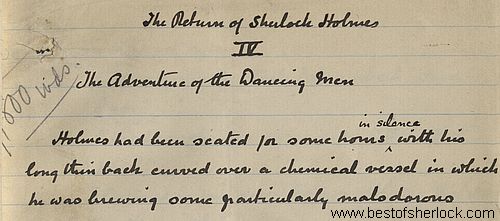 The Return of Sherlock Holmes
IV
The Adventure of the Dancing Men
11000 wds.
in silence
Holmes had been seated for some hours ^ with his
long thin back curved over a chemical vessel in which
he was brewing some particularly malodorous
www.bestofsherlock.com